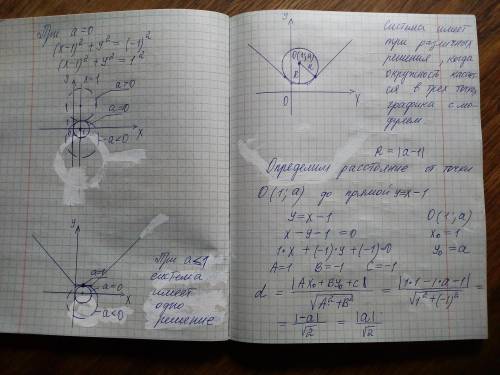 При a=0
(x-1)² + y² = (-1)²
(x-1)² + y² = 1²
y
x=1
a>0
a=0
x
-a<0
y
a=1
a=0
x
-a<0
При a≤1
система
имеет
одно
решение
y
O(1;a)
R
R
O
Система имеет
три различных
решения, когда
окружность касает
ся в трех точк.
графика с мо-
дулем.
R = |a-1|
Определим расстояние от точки
O(1; a) до прямой y=x-1
y = x - 1
x - y - 1 = 0
1·x + (-1)·y + (-1)=0
A=1 B=-1 C=-1
O(1; a)
x₀ = 1
y₀ = a
d = |Ax₀+By₀+c| / √A²+B² = |1·1-1·a-1| / √1²+(-1)² =
= |-a| / √2 = |a| / √2